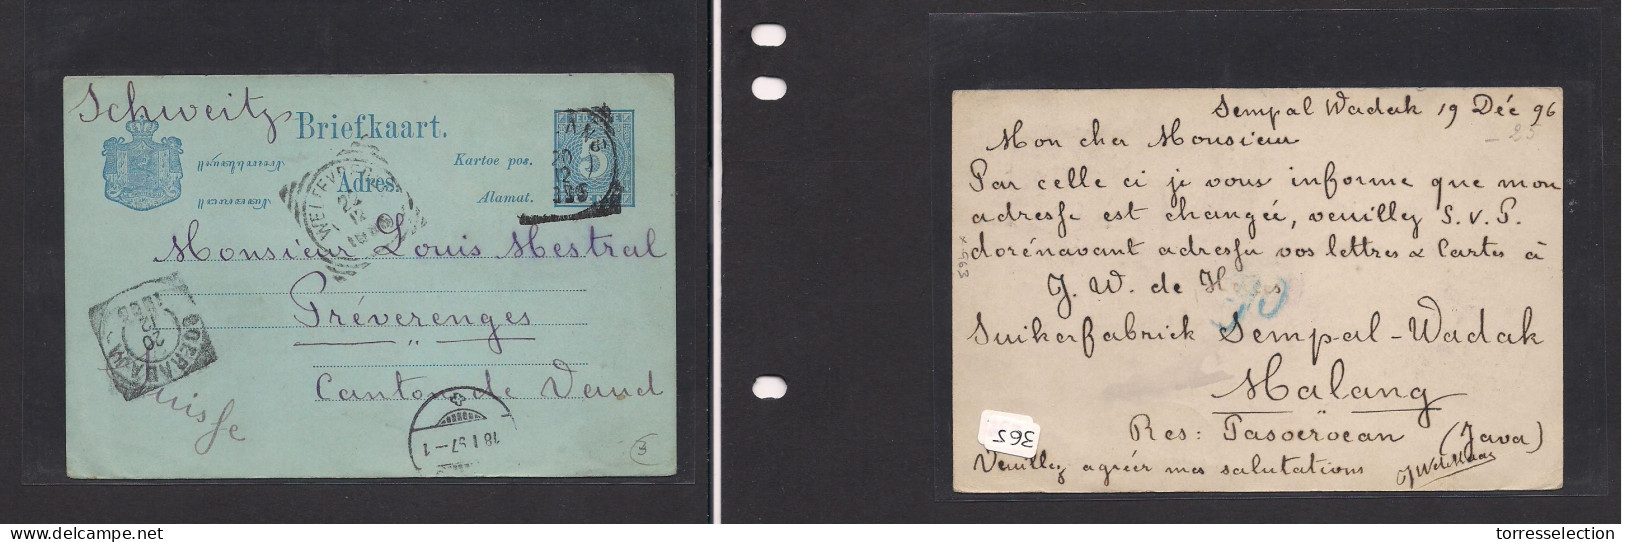 Schweitz
Briefkaart.
Kartoe pos.
Adres.
Alamat.
WELTEVREDEN
SOERABAJA
20
12
1896
Monsieur Louis Mestral
Préverenges
Canton de Vaud
Suisse
18.I.97-1
3
Sempal Wadak 19 Déc 96
- 25
Mon cher Monsieur
Par celle ci je vous informe que mon
adresse est changée, veuillez S.V.P.
dorénavant adresser vos lettres & Cartes à
J. W. de Haas
Suikerfabriek Sempal-Wadak
Malang
Res: Pasoeroean (Java)
Veuillez agréer mes salutations JW de Haas
x 963
365
torresselection